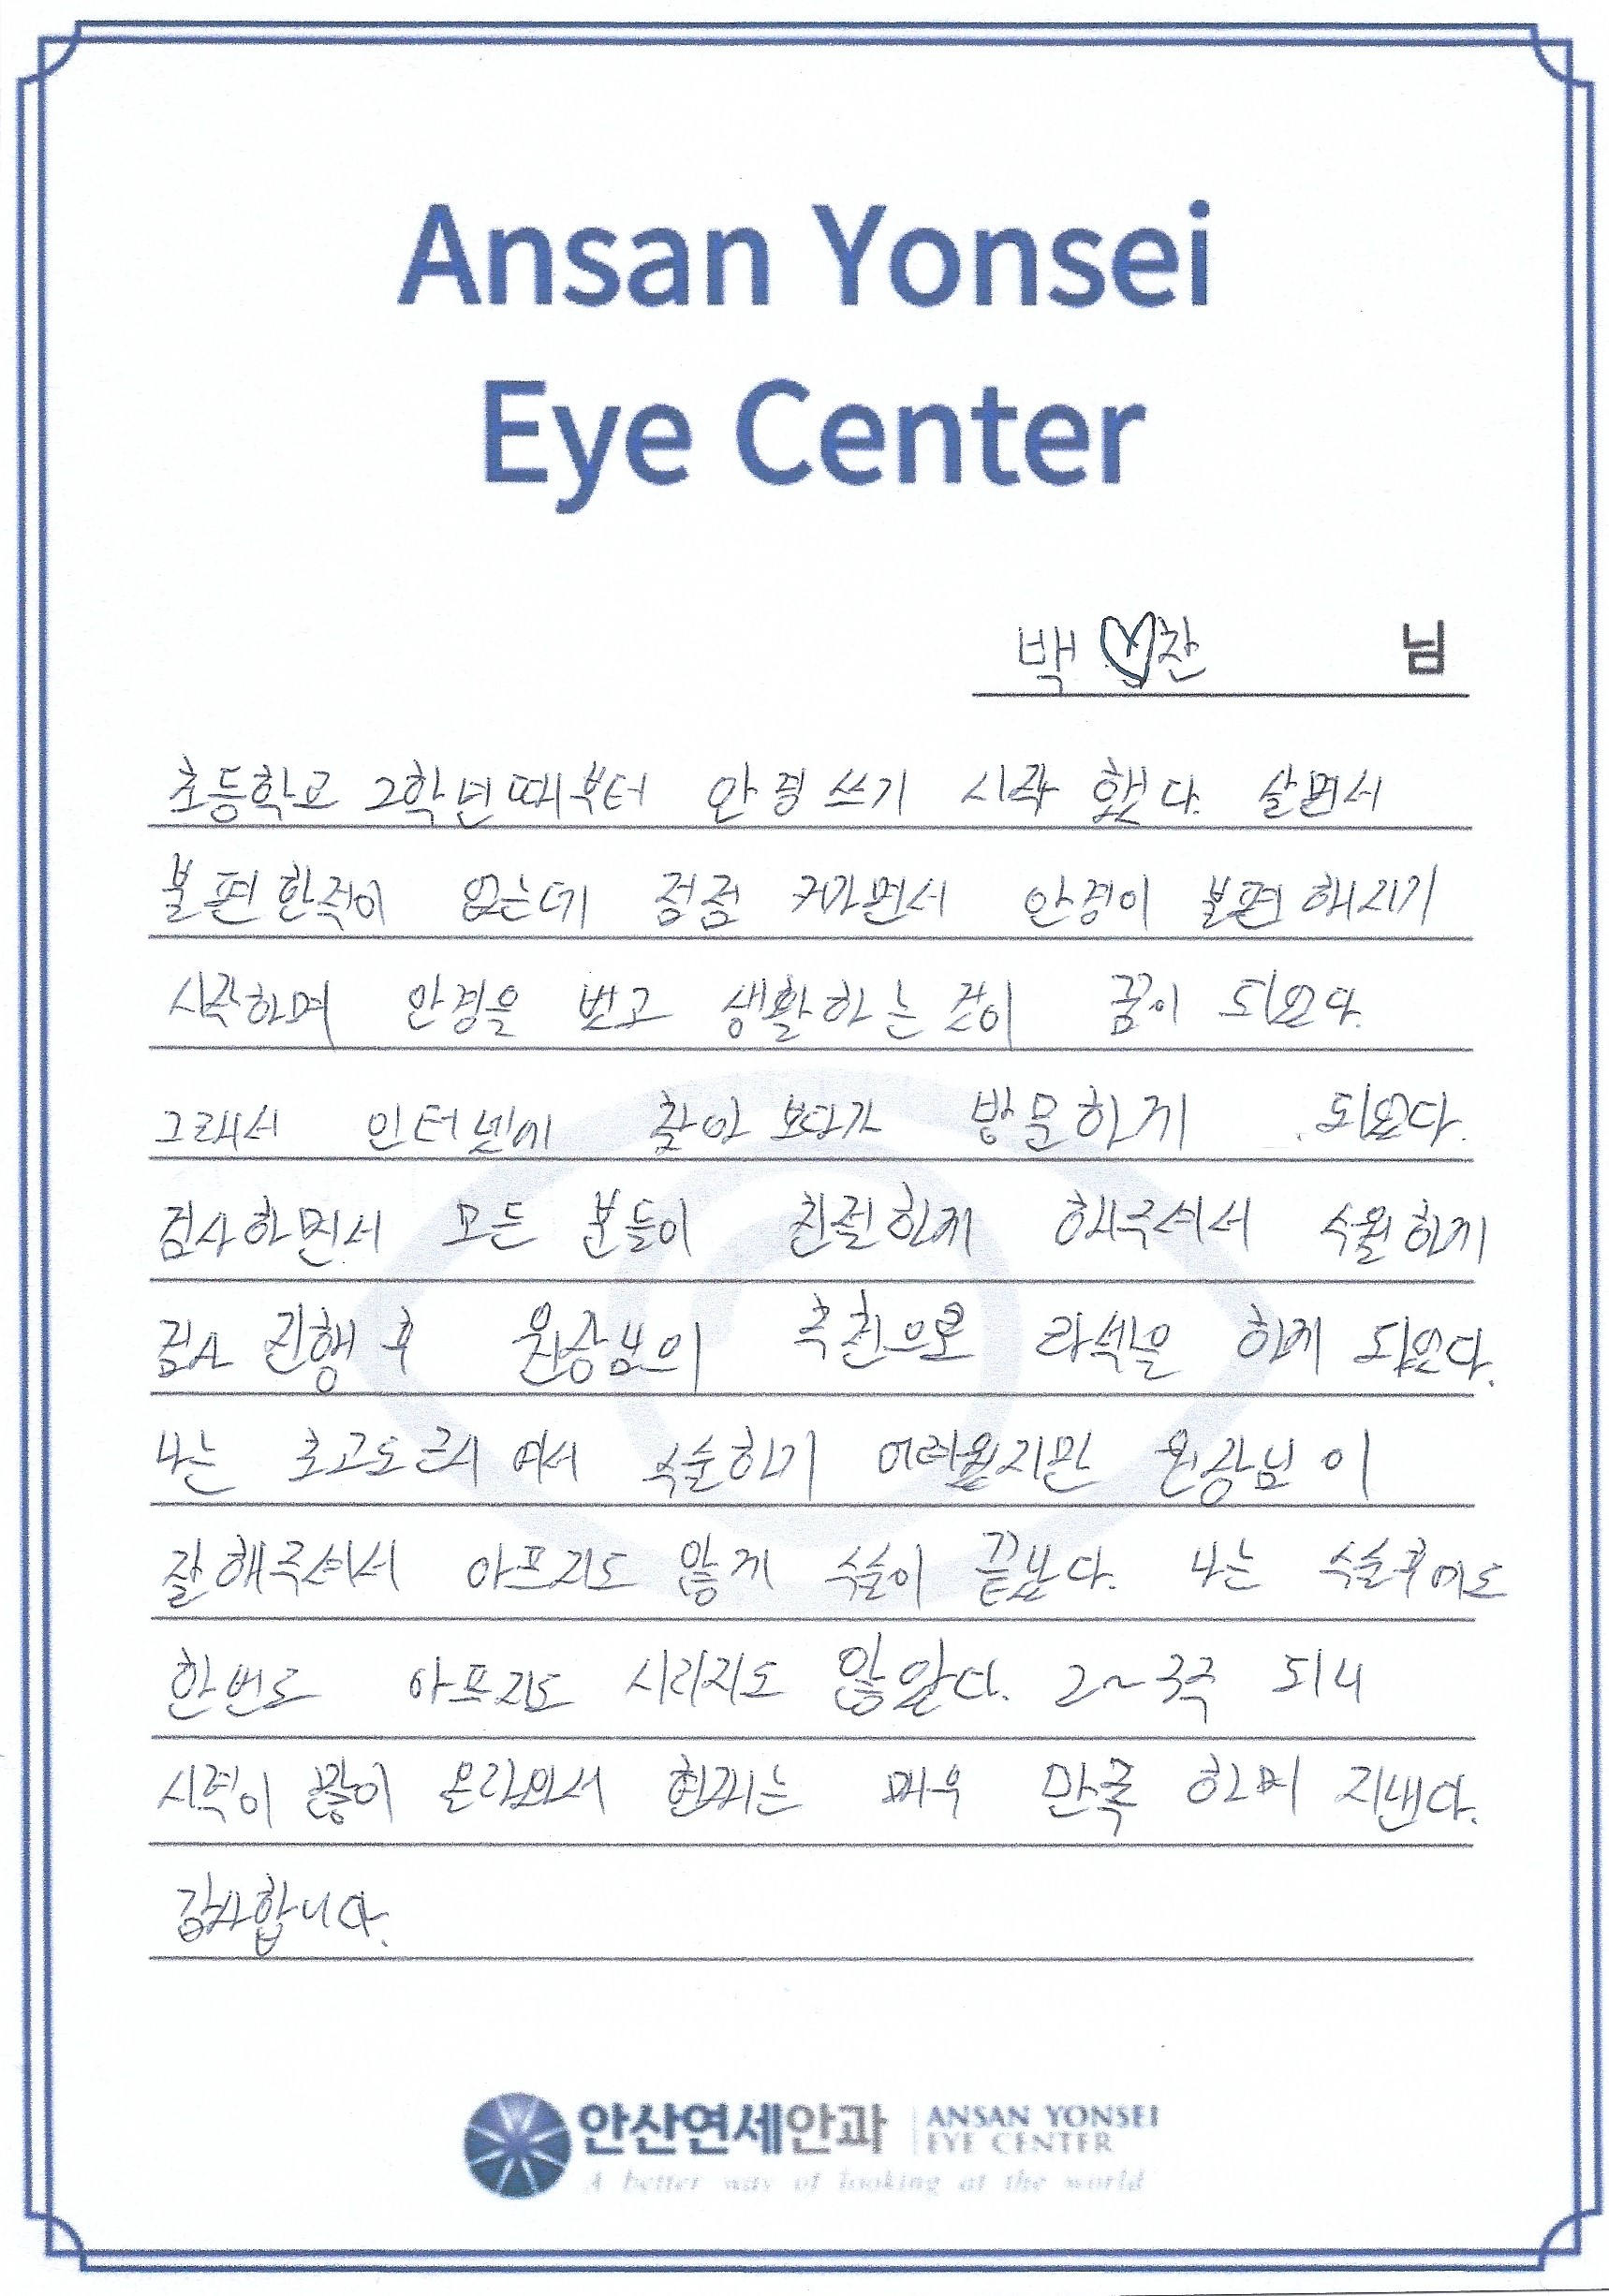 Ansan Yonsei
Eye Center
백 ♡찬 님
초등학교 2학년때부터 안경쓰기 시작 했다. 살면서
불편한적이 없는데 점점 커가면서 안경이 불편해지기
시작하며 안경을 벗고 생활하는 것이 꿈이 되었다.
그래서 인터넷에 찾아 보다가 방문하게 되었다.
검사하면서 모든 분들이 친절하게 해주셔서 수월하게
검사 진행 후 원장님의 추천으로 라섹을 하게 되었다.
나는 초고도근시 여서 수술하기 어려웠지만 원장님 이
잘해주셔서 아프지도 않게 수술이 끝났다. 나는 수술후에도
한번도 아프지도 시리지도 않았다. 2~3주 되니
시력이 많이 올라와서 현재는 매우 만족 하며 지낸다.
감사합니다.
안산연세안과 ANSAN YONSEI
EYE CENTER
A better way of looking at the world